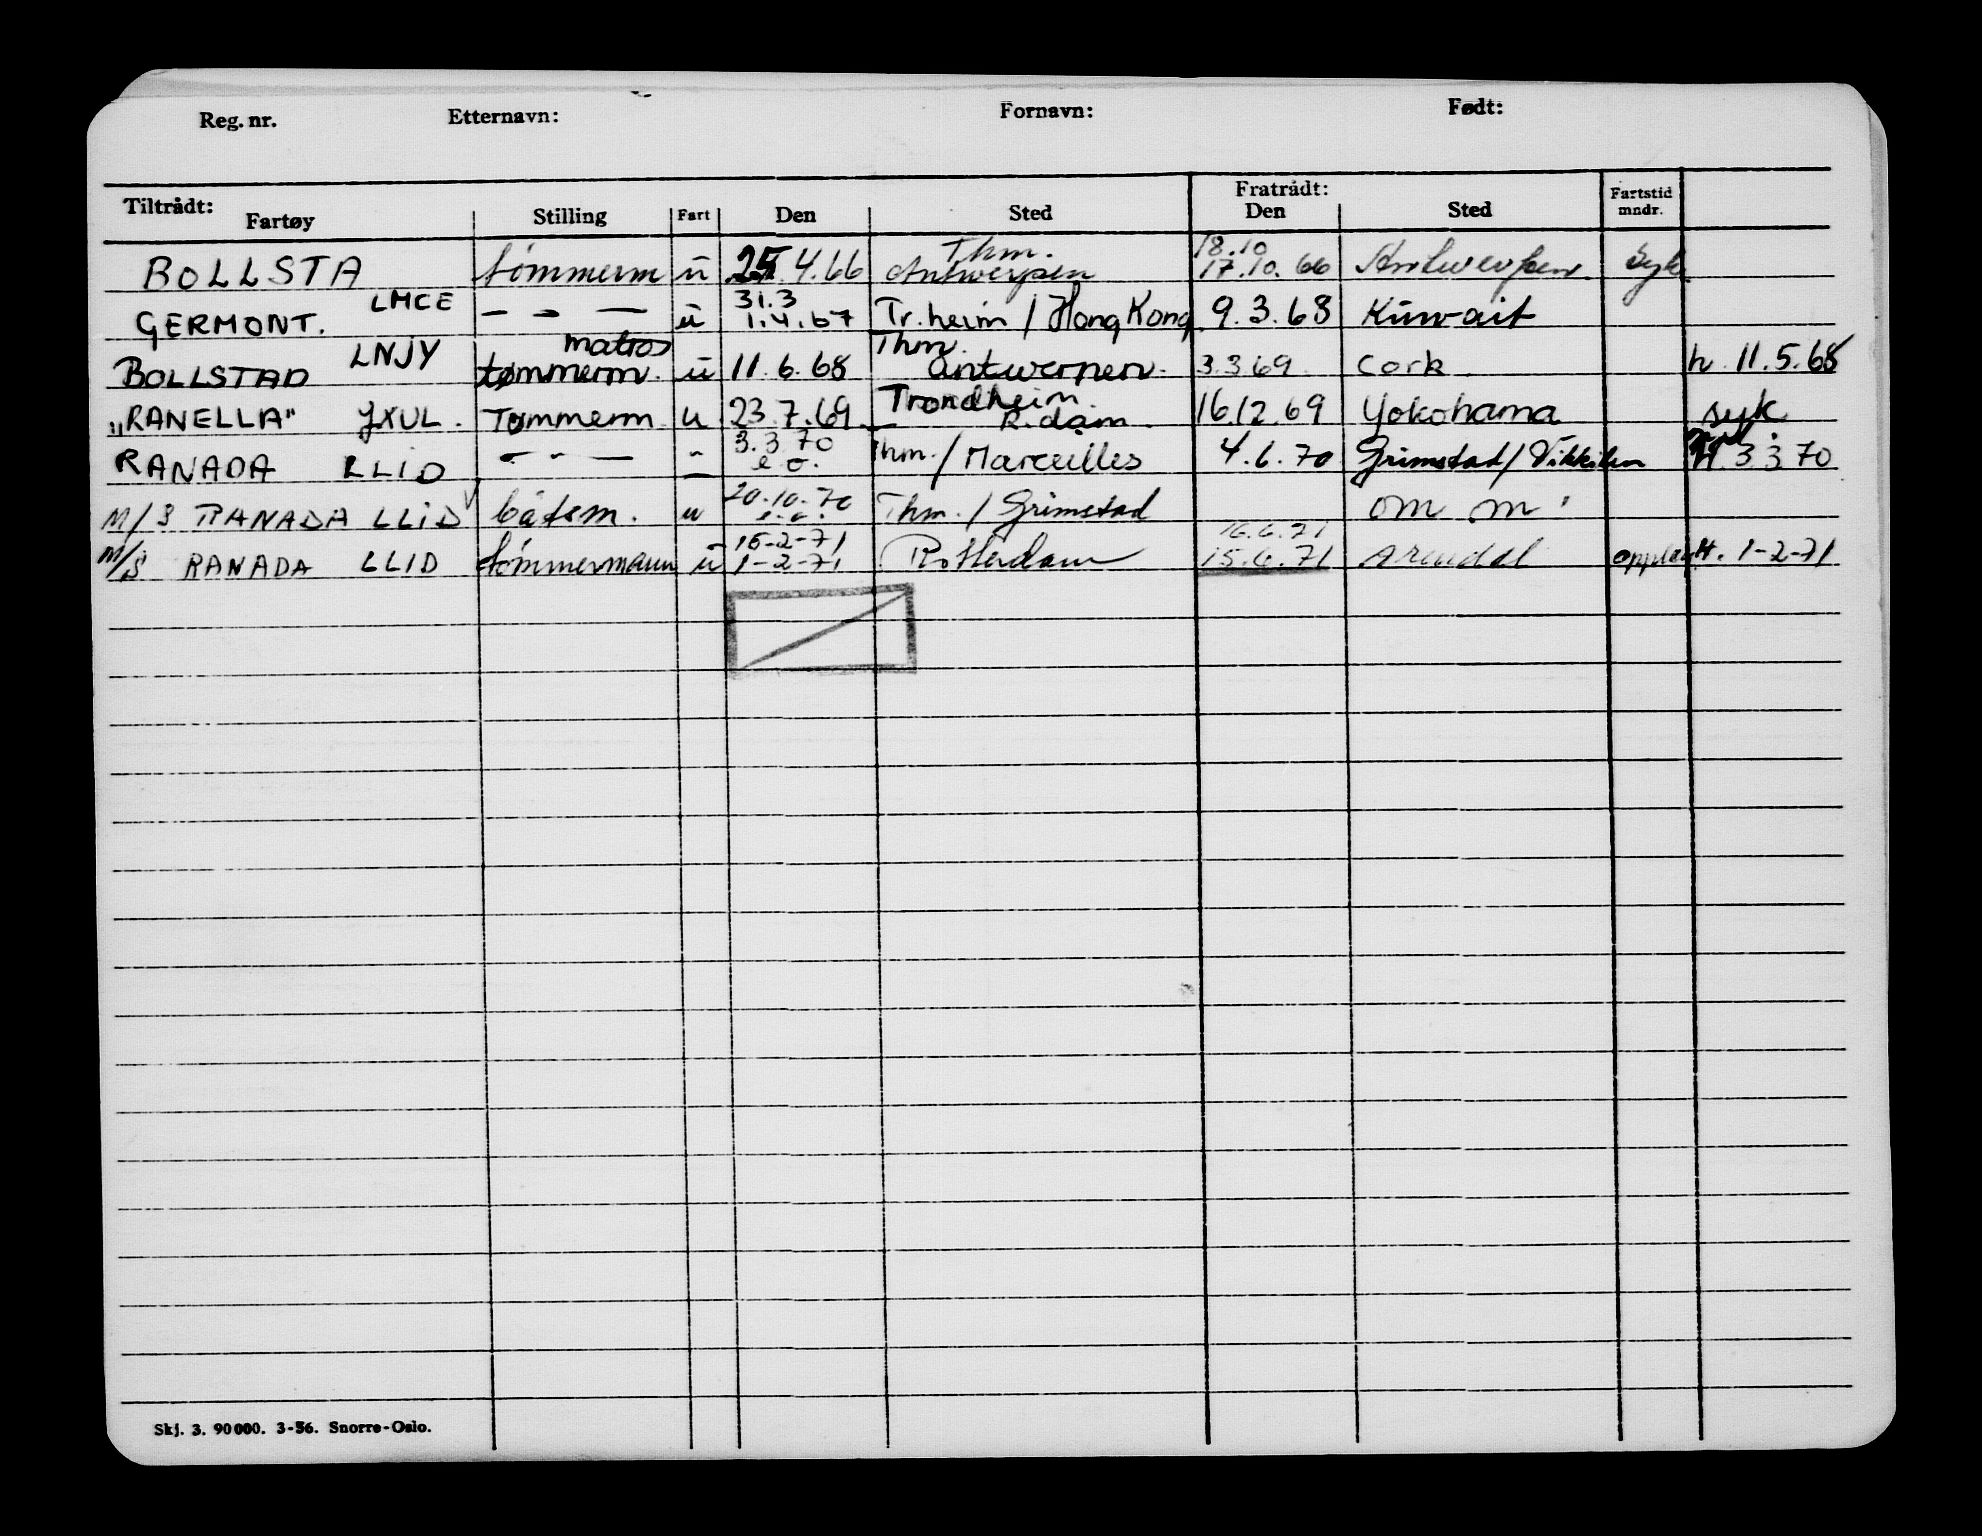 Reg. nr. Etternavn: Fornavn: Født:
Tiltrådt: Fratrådt: Fartstid
Fartøy Stilling Fart Den Sted Den Sted mndr.
Thm. 18.10
BOLLSTA tømmerm u 25.4.66 Antwerpen 17.10.66 Antwerpen syk
LMCE 31.3
GERMONT. — - — u 1.4.67 Tr.heim / Hong Kong 9.3.68 Kuwait
matros Thm.
BOLLSTAD LNJY tømmerm. u 11.6.68 antwerpen. 3.3.69 cork. h. 11.5.68
Trondheim.
"RANELLA" JXUL. Tømmerm. u 23.7.69 R.dam. 16.12.69 Yokohama syk
3.3.70
RANADA LLID — " — " e.o. Thm. / Marceilles 4.6.70 Grimstad / Vikkilen H. 3.3.70
20.10.70
M/S RANADA LLID båtsm. u e.o. Thm. / Grimstad om m
15-2-71 16.6.71
M/S RANADA LLID tømmermann u 1-2-71 Rotterdam 15.6.71 Arendal opplag H. 1-2-71
Skj. 3. 90000. 3-56. Snorre-Oslo.